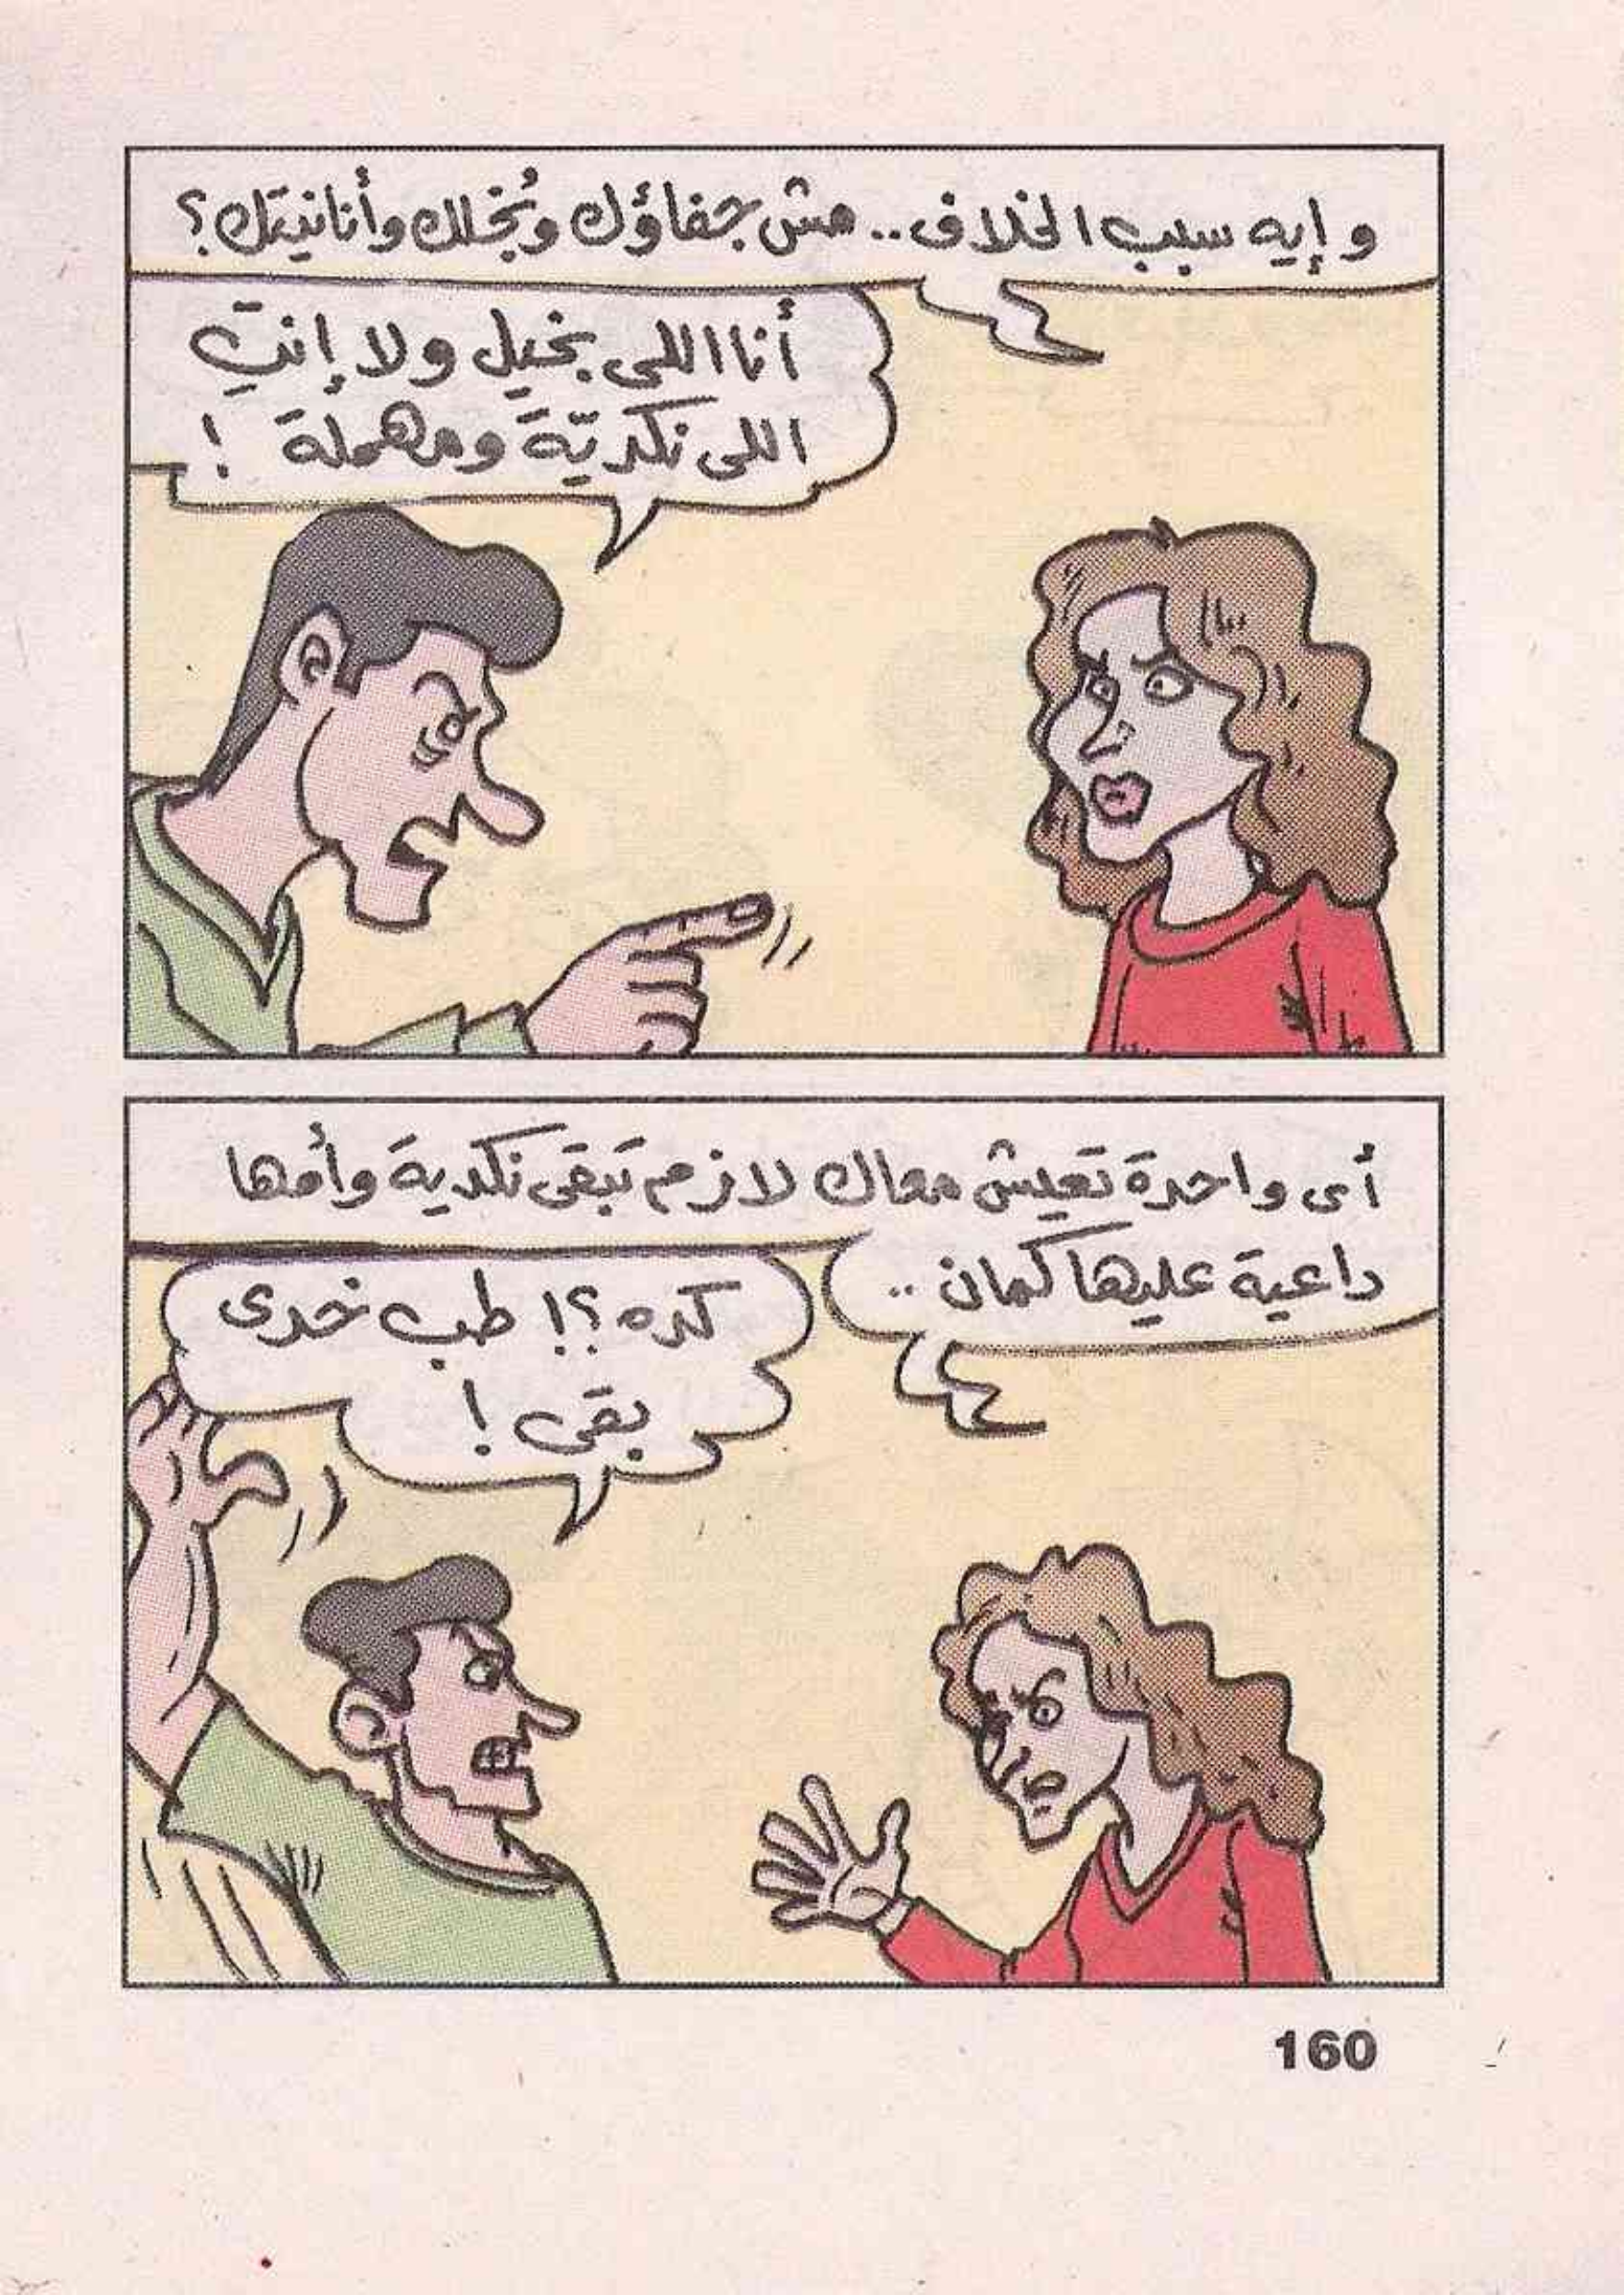 وإيه سبب الخلاف.. مش جفاؤك وبُخلك وأنانيتك؟
أنا اللى بخيل ولا إنتِ
اللى نكديّة ومهملة !
أى واحدة تعيش معاك لازم تبقى نكدية وأمها
داعية عليها كمان ..
كده ؟! طب خدى
بقى !
160